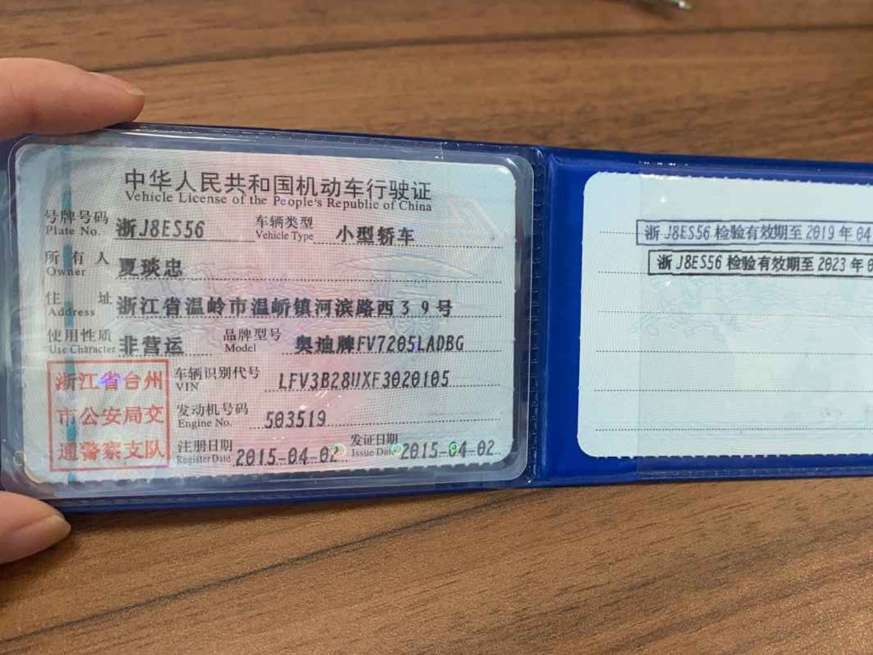 中华人民共和国机动车行驶证
Vehicle License of the People's Republic of China
号牌号码 浙J8ES56 车辆类型 小型轿车
Plate No. Vehicle Type
所有人 夏琰忠
Owner
住址 浙江省温岭市温峤镇河滨路西39号
Address
使用性质 非营运 品牌型号 奥迪牌FV7205LADBG
Use Character Model
浙江省台州
市公安局交
通警察支队
车辆识别代号 LFV3B28UXF3020105
VIN
发动机号码 503519
Engine No.
注册日期 2015-04-02 发证日期 2015-04-02
Register Date Issue Date
浙J8ES56检验有效期至2019年04
浙J8ES56检验有效期至2023年